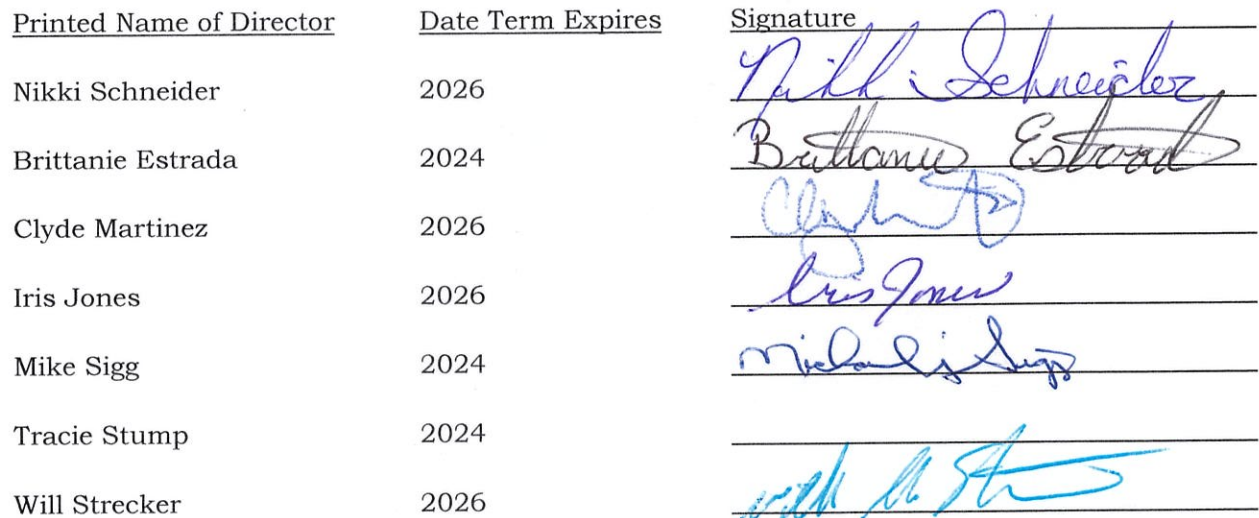 Printed Name of Director Date Term Expires Signature
Nikki Schneider 2026 Nikki Schneider
Brittanie Estrada 2024 Brittanie Estrada
Clyde Martinez 2026
Iris Jones 2026 Iris Jones
Mike Sigg 2024 Michael J Sigg
Tracie Stump 2024
Will Strecker 2026